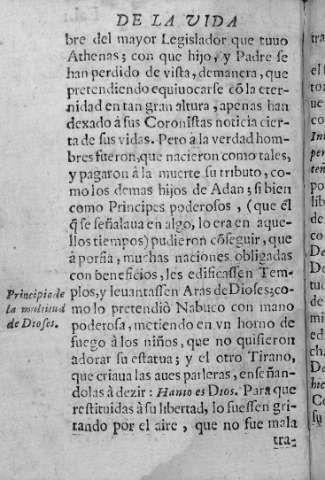 DE LA VIDA
bre del mayor Legislador que tuuo
Athenas; con que hijo, y Padre se
han perdido de vista, demanera, que
pretendiendo equiuocarse cõ la eter-
nidad en tan gran altura, apenas han
dexado à sus Coronistas noticia cier-
ta de sus vidas. Pero à la verdad hom-
bres fueron, que nacieron como tales,
y pagaron à la muerte su tributo, co-
mo los demas hijos de Adan; si bien
como Principes poderosos, (que él
q̃ se señalaua en algo, lo era en aque-
llos tiempos) pudieron cõseguir, que
à porfia, muchas naciones obligadas
con beneficios, les edificassen Tem-
plos, y leuantassen Aras de Dioses; co-
mo lo pretendiò Nabuco con mano
poderosa, metiendo en vn horno de
fuego à los niños, que no quisieron
adorar su estatua; y el otro Tirano,
que criaua las aues parleras, enseñan-
dolas à dezir: Hanno es Dios. Para que
restituidas à su libertad, lo fuessen gri-
tando por el aire, que no fue mala
tra-
Principio de
la multitud
de Dioses.